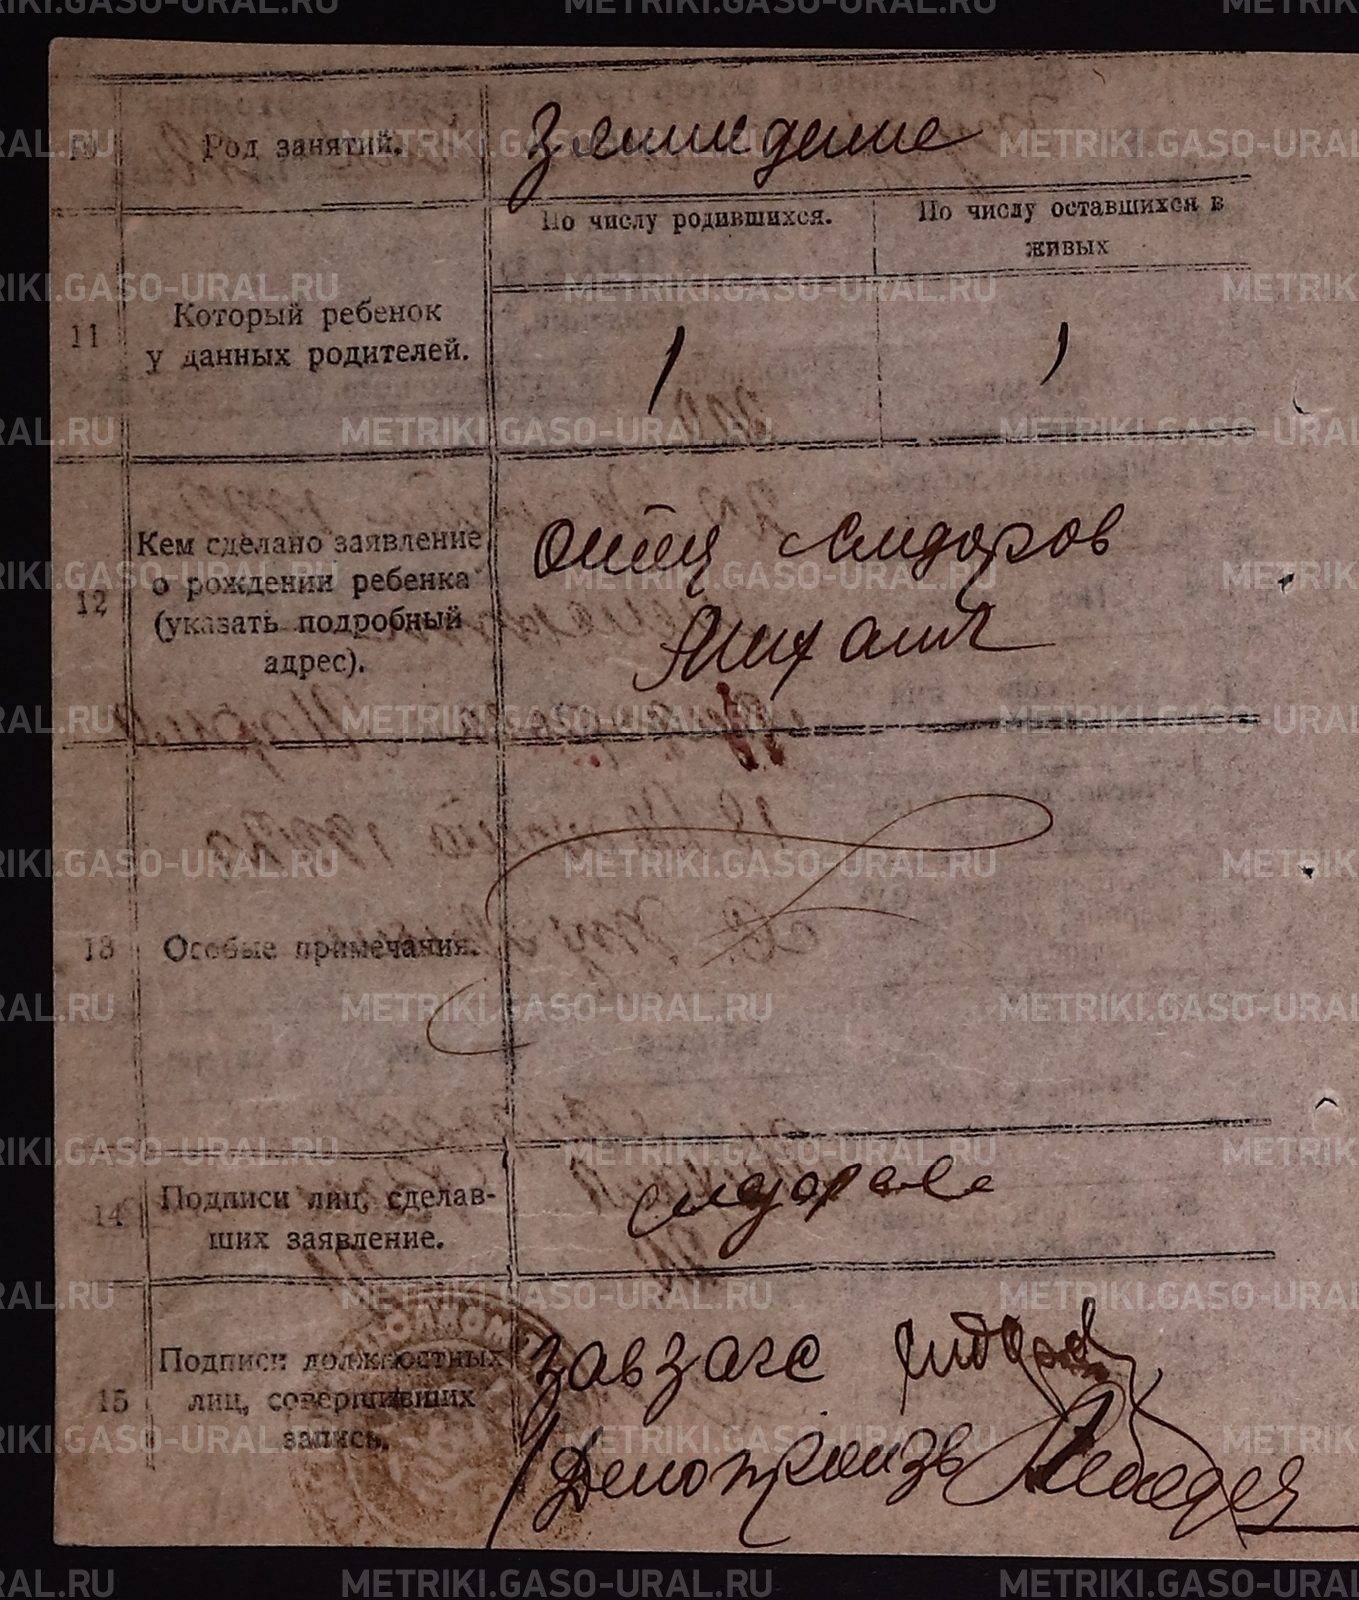 10 Род занятий. Землиделие
По числу родившихся. По числу оставшихся в живых
11 Который ребенок
у данных родителей. 1 1
12 Кем сделано заявление
о рождении ребенка
(указать подробный
адрес).
Отец Сидоров
Михаил
13 Особые примечания.
14 Подписи лиц, сделав-
ших заявление.
Сидоров
15 Подписи должностных
лиц, совершивших
запись.
завзагс Сидоров
Делопроизв
METRIKI.GASO-URAL.RU